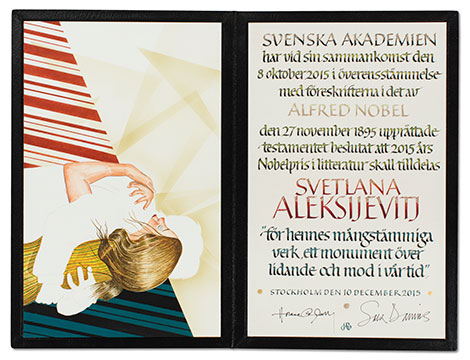 SVENSKA AKADEMIEN
har vid sin sammankomst den
8 oktober 2015 i överensstämmelse
med föreskrifterna i det av
ALFRED NOBEL
den 27 november 1895 upprättade
testamentet beslutat att 2015 års
Nobelpris i litteratur skall tilldelas
SVETLANA
ALEKSIJEVITJ
"för hennes mångstämmiga
verk, ett monument över
lidande och mod i vår tid"
STOCKHOLM DEN 10 DECEMBER 2015
Sara Danius